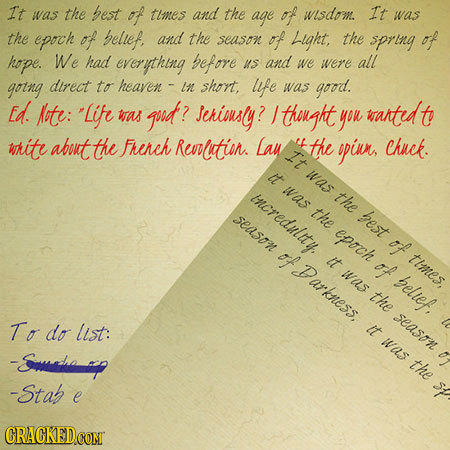 It was the best of times and the age of wisdom. It was
the epoch of belief, and the season of Light, the spring of
hope. We had everything before us and we were all
going direct to heaven - in short, life was good.
Ed. Note: "Life was good"? Seriously? I thought you wanted to
write about the French Revolution. Lay off the opium, Chuck.
It was the best of times,
it was the epoch of belief,
incredulity, it was the season of
season of Darkness, it was the sp
To do list:
-Smoke op
-Stab e
CRACKED.COM